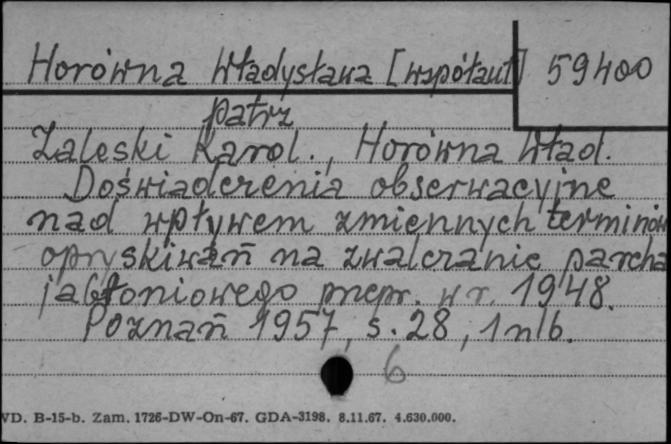 Horówna Władysława [współaut] 59400
patrz
Zaleski Karol., Horówna Wład.
Doświadczenia obserwacyjne
nad wpływem zmiennych terminów
opryskiwań na zwalczanie parcha
jabłoniowego przepr. w r. 1948.
Poznań 1957, s. 28, 1 nlb.
6
VD. B-15-b. Zam. 1726-DW-On-67. GDA-3198. 8.11.67. 4.630.000.